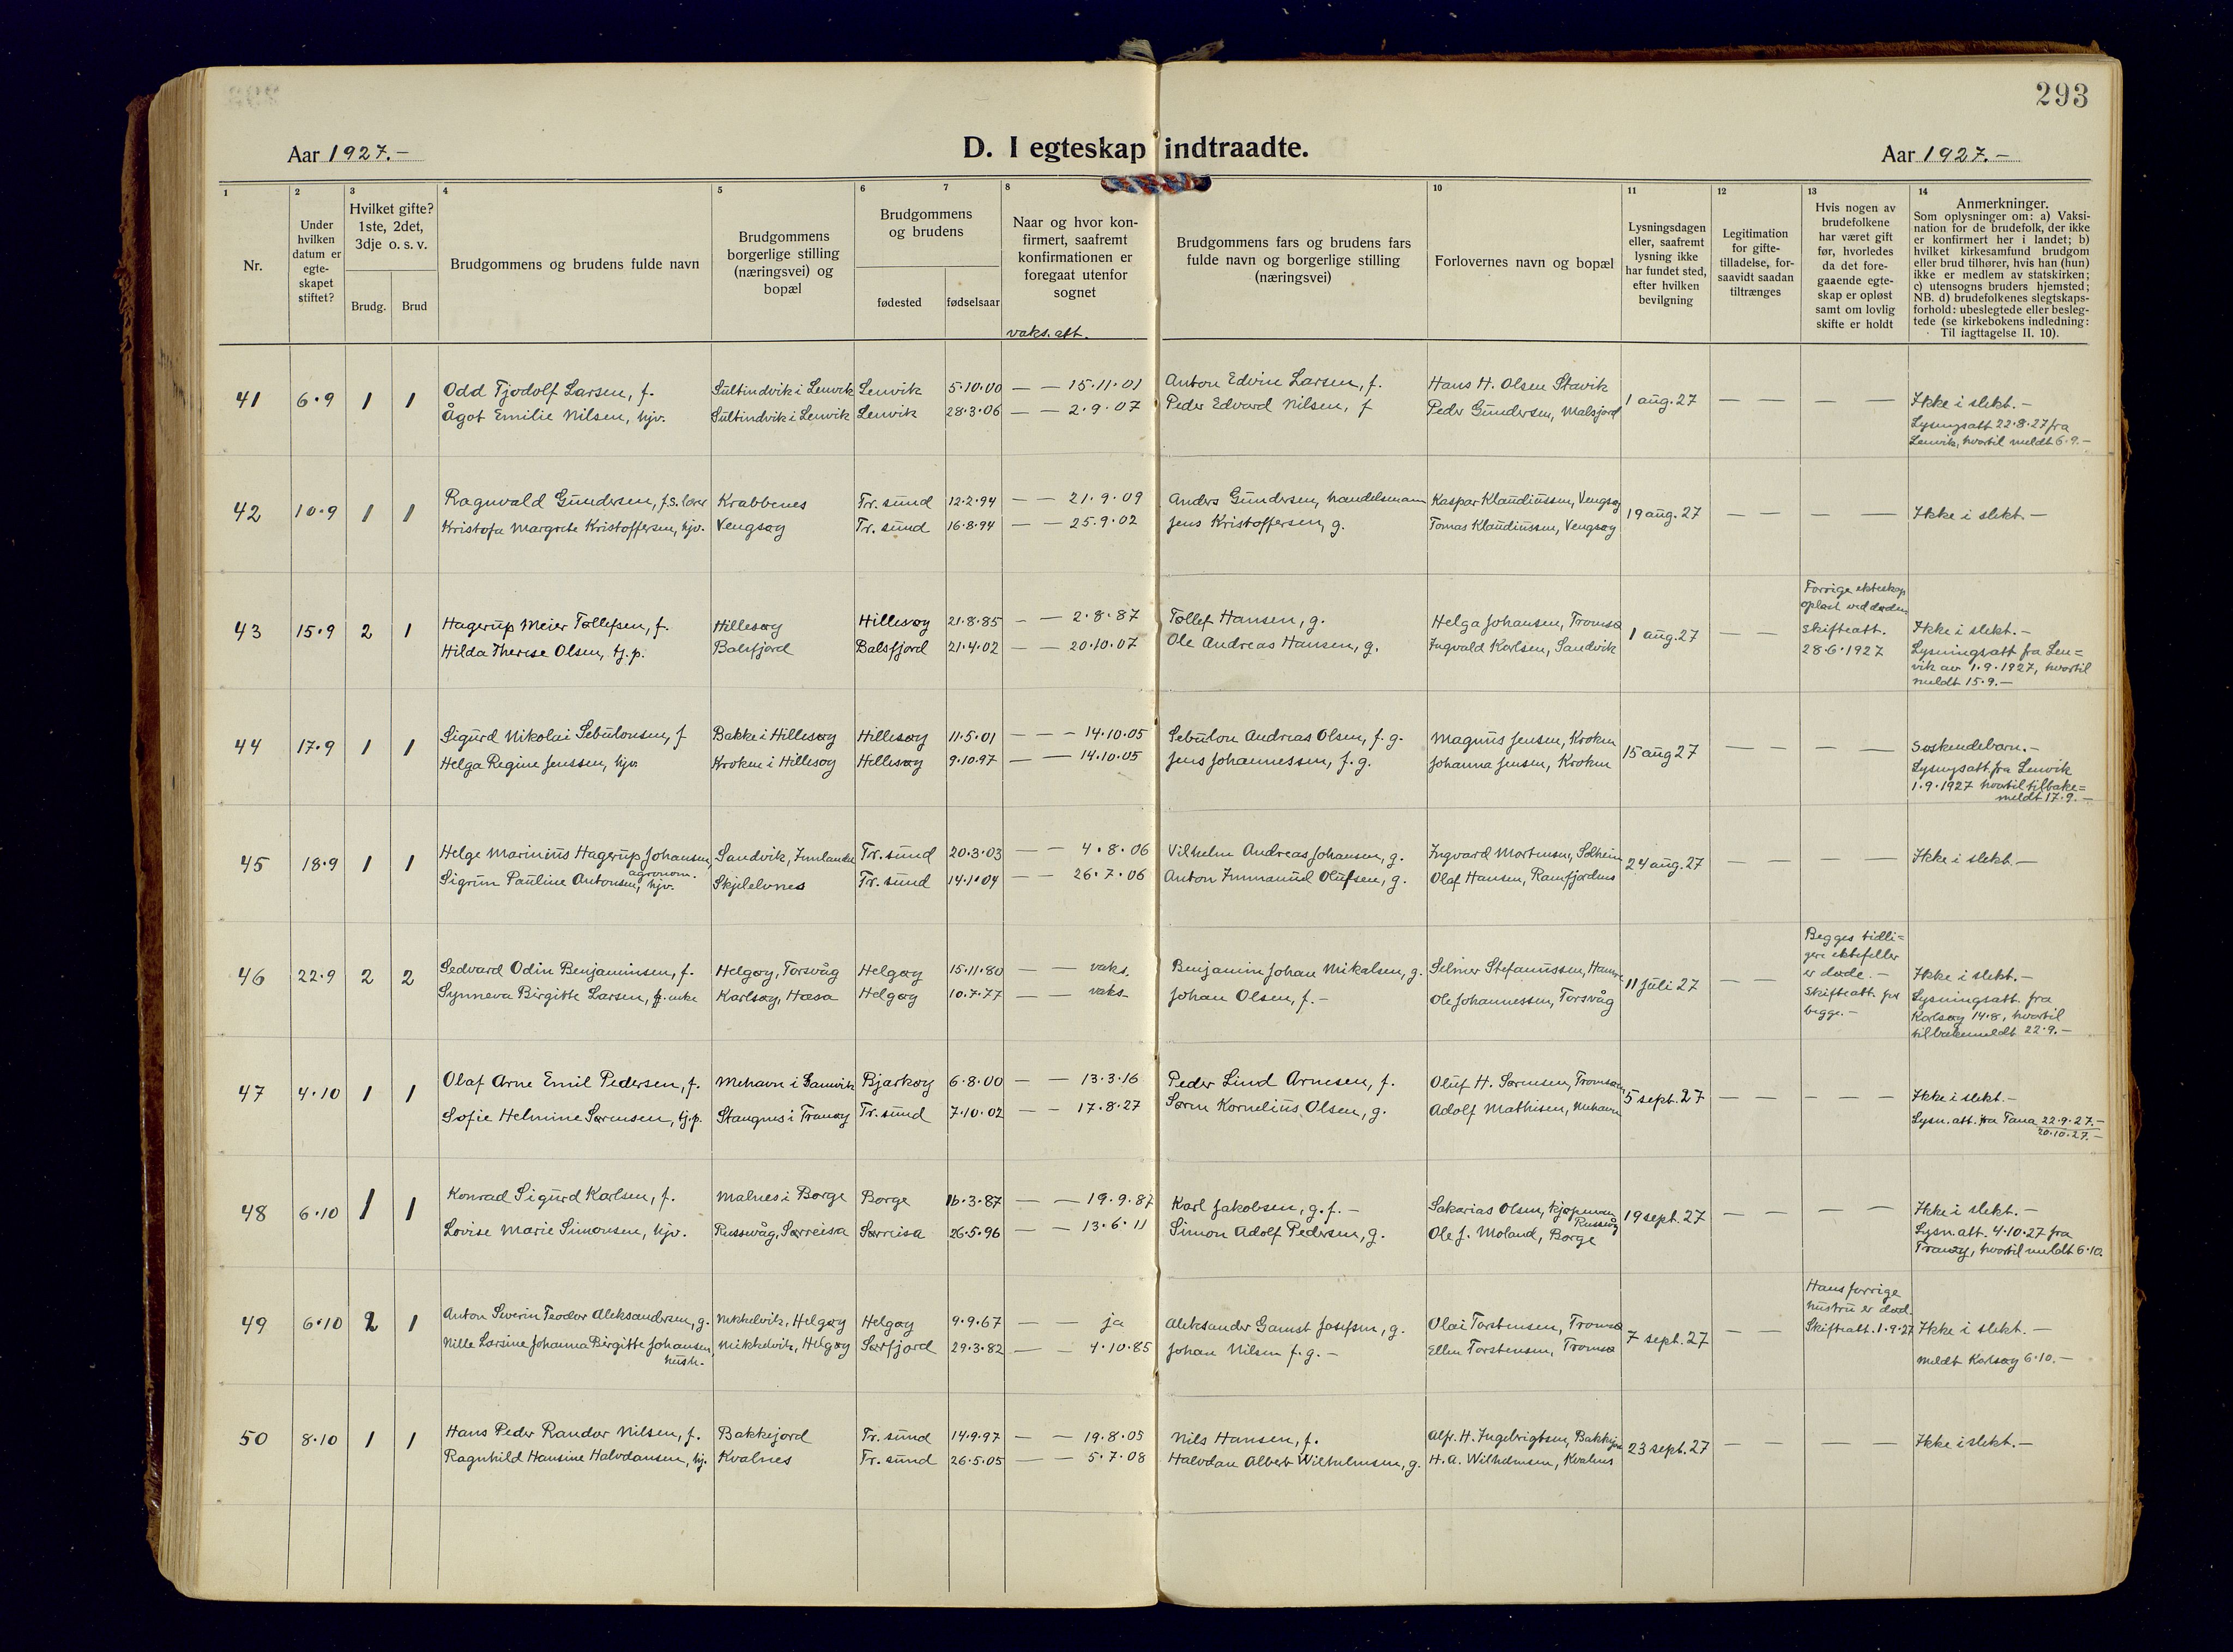 293
Aar 1927.-
D. I egteskap indtraadte.
Aar 1927.-
1 2 3 4 5 6 7 8 10 11 12 13 14
Nr.
Under hvilken datum er egte-skapet stiftet?
Hvilket gifte? 1ste, 2det, 3dje o. s. v.
Brudg. Brud
Brudgommens og brudens fulde navn
Brudgommens borgerlige stilling (næringsvei) og bopæl
Brudgommens og brudens
fødested fødselsaar
Naar og hvor kon-firmert, saafremt konfirmationen er foregaat utenfor sognet
vaks. att.
Brudgommens fars og brudens fars fulde navn og borgerlige stilling (næringsvei)
Forlovernes navn og bopæl
Lysningsdagen eller, saafremt lysning ikke har fundet sted, efter hvilken bevilgning
Legitimation for gifte-tilladelse, for-saavidt saadan tiltrænges
Hvis nogen av brudefolkene har været gift før, hvorledes da det fore-gaaende egte-skap er opløst samt om lovlig skifte er holdt
Anmerkninger.
Som oplysninger om: a) Vaksi-nation for de brudefolk, der ikke er konfirmert her i landet; b) hvilket kirkesamfund brudgom eller brud tilhører, hvis han (hun) ikke er medlem av statskirken; c) utensogns bruders hjemsted; NB. d) brudefolkenes slegtskaps-forhold: ubeslegtede eller besleg-tede (se kirkebokens indledning: Til iagttagelse II. 10).
41 6.9 1 1
Odd Tjodolf Larsen, f. Sultindvik i Lenvik Lenvik 5.10.00 — — 15.11.01 Anton Edvin Larsen, f. Hans H. Olsen Stavik
Ågot Emilie Nilsen, hjv. Sultindvik i Lenvik Lenvik 28.3.06 — — 2.9.07 Peder Edvard Nilsen, f Peder Gundersen, Malsjord
1 aug. 27 — — — —
Ikke i slekt.-
Lysingsatt 22.8.27 fra
Lenvik, hvortil meldt 6.9.-
42 10.9 1 1
Ragnvald Gundersen, f.s. lærer Krabbenes Tr. sund 12.2.94 — — 21.9.09 Anders Gundersen, handelsmann Kaspar Klaudiussen, Vengsøy
Kristofa Margrete Kristoffersen, hjv. Vengsøy Tr. sund 16.8.94 — — 25.9.02 Jens Kristoffersen, g. Tomas Klaudiussen, Vengsøy
19 aug. 27 — — — —
Ikke i slekt.-
43 15.9 2 1
Hagerup Meier Tollefsen, f. Hillesøy Hillesøy 21.8.85 — — 2.8.87 Tollef Hansen, g. Helga Johansen, Tromsø
Hilda Therese Olsen, tj.p. Balsfjord Balsfjord 21.4.02 — — 20.10.07 Ole Andreas Hansen, g. Ingvald Karlsen, Sandvik
1 aug. 27 — —
Forrige ekteskap
opløst ved døden
skifteatt.
28.6.1927
Ikke i slekt.-
Lysningsatt fra Len=
vik av 1.9.1927, hvortil
meldt 15.9.-
44 17.9 1 1
Sigurd Nikolai Sebulonsen, f Bakke i Hillesøy Hillesøy 11.5.01 — — 14.10.05 Sebulon Andreas Olsen, f. g. Magnus Jensen, Kroken
Helga Regine Jenssen, hjv. Kroken i Hillesøy Hillesøy 9.10.97 — — 14.10.05 Jens Johannessen, f. g. Johanna Jensen, Kroken
15 aug 27 — — — —
Søskendebarn.-
Lysingsatt. fra Lenvik
1.9.1927 hvortil tilbake=
meldt 17.9.-
45 18.9 1 1
Helge Marinius Hagerup Johansen, agronom. Sandvik, Innlandet Tr. sund 20.3.03 — — 4.8.06 Vilhelm Andreas Johansen, g. Ingvard Mortensen, Solheim
Sigrun Pauline Antonsen, hjv. Skjelelvnes Tr. sund 14.1.04 — — 26.7.06 Anton Immanuel Olufsen, g. Olaf Hansen, Ramfjordnes
24 aug. 27 — — — —
Ikke i slekt.-
46 22.9 2 2
Sedvard Odin Benjaminsen, f. Helgøy, Torsvåg Helgøy 15.11.80 — — vaks. Benjamin Johan Mikalsen, g. Selmer Stefanussen, Hamre
Synneva Birgitte Larsen, f. enke Karlsøy, Hæsa Helgøy 10.7.77 — — vaks. Johan Olsen, f.- Ole Johannessen, Torsvåg
11 juli 27 — —
Begges tidli=
gere ektefeller
er døde.-
Skifteatt. for
begge.-
Ikke i slekt.-
Lysningsatt. fra
Karlsøy 14.8, hvortil
tilbakemeldt 22.9.-
47 4.10 1 1
Olaf Arne Emil Pedersen, f. Mehavn i Bjarkøy 6.8.00 — — 13.3.16 Peder Lind Arnesen, f. Oluf H. Sørensen,
Sofie Helmine Sørensen, tj.p. Stangnes i Tranøy Tr. sund 7.10.02 — — 17.8.27 Søren Kornelius Olsen, g. Adolf Mathisen, Mehavn
5 sept. 27 — — — —
Ikke i slekt.-
Lysn. att. fra Tana 22.9.27.-
20.10.27.-
48 6.10 1 1
Konrad Sigurd Karlsen, f. Malnes i Borge Borge 16.3.87 — — 19.9.87 Karl Jakobsen, g. f.- Sakarias Olsen, kjøpmann Russvåg
Lovise Marie Simonsen, hjv. Russevåg, Sørreisa Sørreisa 26.5.96 — — 13.6.11 Simon Adolf Pedersen, g. Ole J. Moland, Borge
19 sept. 27 — — — —
Ikke i slekt.-
Lysn. att. 4.10.27 fra
Tranøy, hvortil meldt 6.10.
49 6.10 2 1
Anton Severin Teodor Aleksandersen, g. Mikkelvik, Helgøy Helgøy 9.9.67 — — ja Aleksander Gamst Josefsen, g. Olai Torstensen, Tromsø
Nille Larsine Johanna Birgitte Johansen, hush. Mikkelvik, Helgøy Sørfjord 29.3.82 — — 4.10.85 Johan Nilsen f. g.- Ellen Torstensen, Tromsø
7 sept. 27 — —
Hans forrige
hustru er død.
Skifteatt. 1.9.27
Ikke i slekt.-
Meldt Karlsøy 6.10.-
50 8.10 1 1
Hans Peder Randor Nilsen, f. Bakkejord Tr. sund 14.9.97 — — 19.8.05 Nils Hansen, f. Alfr. H. Ingebrigtsen,
Ragnhild Hansine Halvdansen, hj. Kvalnes Tr. sund 26.5.05 — — 5.7.08 Halvdan Albert Wilhelmsen, g. H. A. Wilhelmsen, Kvalnes
23 sept. 27 — — — —
Ikke i slekt.-